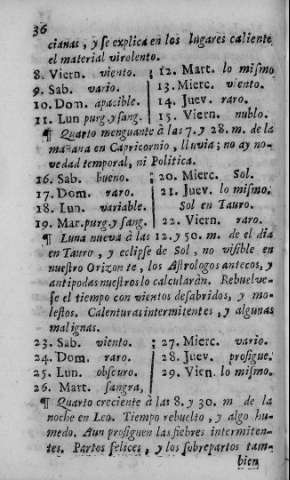 36
cianas, y se explica en los lugares caliente
el material virolento.
8. Viern. viento. 12. Mart. lo mismo
9. Sab. vario. 13. Mierc. viento.
10. Dom. apacible. 14. Juev. raro.
11. Lun purg. y sang. 15. Viern. nublo.
¶ Quarto menguante à las 7. y 28. m. de la
mañana en Capricornio, lluvia; no ay no-
vedad temporal, ni Politica.
16. Sab. bueno. 20. Mierc. Sol.
17. Dom. raro. 21. Juev. lo mismo.
18. Lun. variable. Sol en Tauro.
19. Mar. purg. y sang. 22. Viern. raro.
¶ Luna nueva à las 12. y 50. m. de el dia
en Tauro, y eclipse de Sol, no visible en
nuestro Orizonte, los Astrologos antecos, y
antipodas nuestros lo calcularàn. Rebuelve-
se el tiempo con vientos desabridos, y mo-
lestos. Calenturas intermitentes, y algunas
malignas.
23. Sab. viento. 27. Mierc. vario.
24. Dom. raro. 28. Juev. prosigue.
25. Lun. obscuro. 29. Vien. lo mismo.
26. Mart. sangra,
¶ Quarto creciente à las 8. y 30. m de la
noche en Leo. Tiempo rebuelto, y algo hu-
medo. Aun prosiguen las fiebres intermiten-
tes. Partos felices, y los sobrepartos tam-
bien